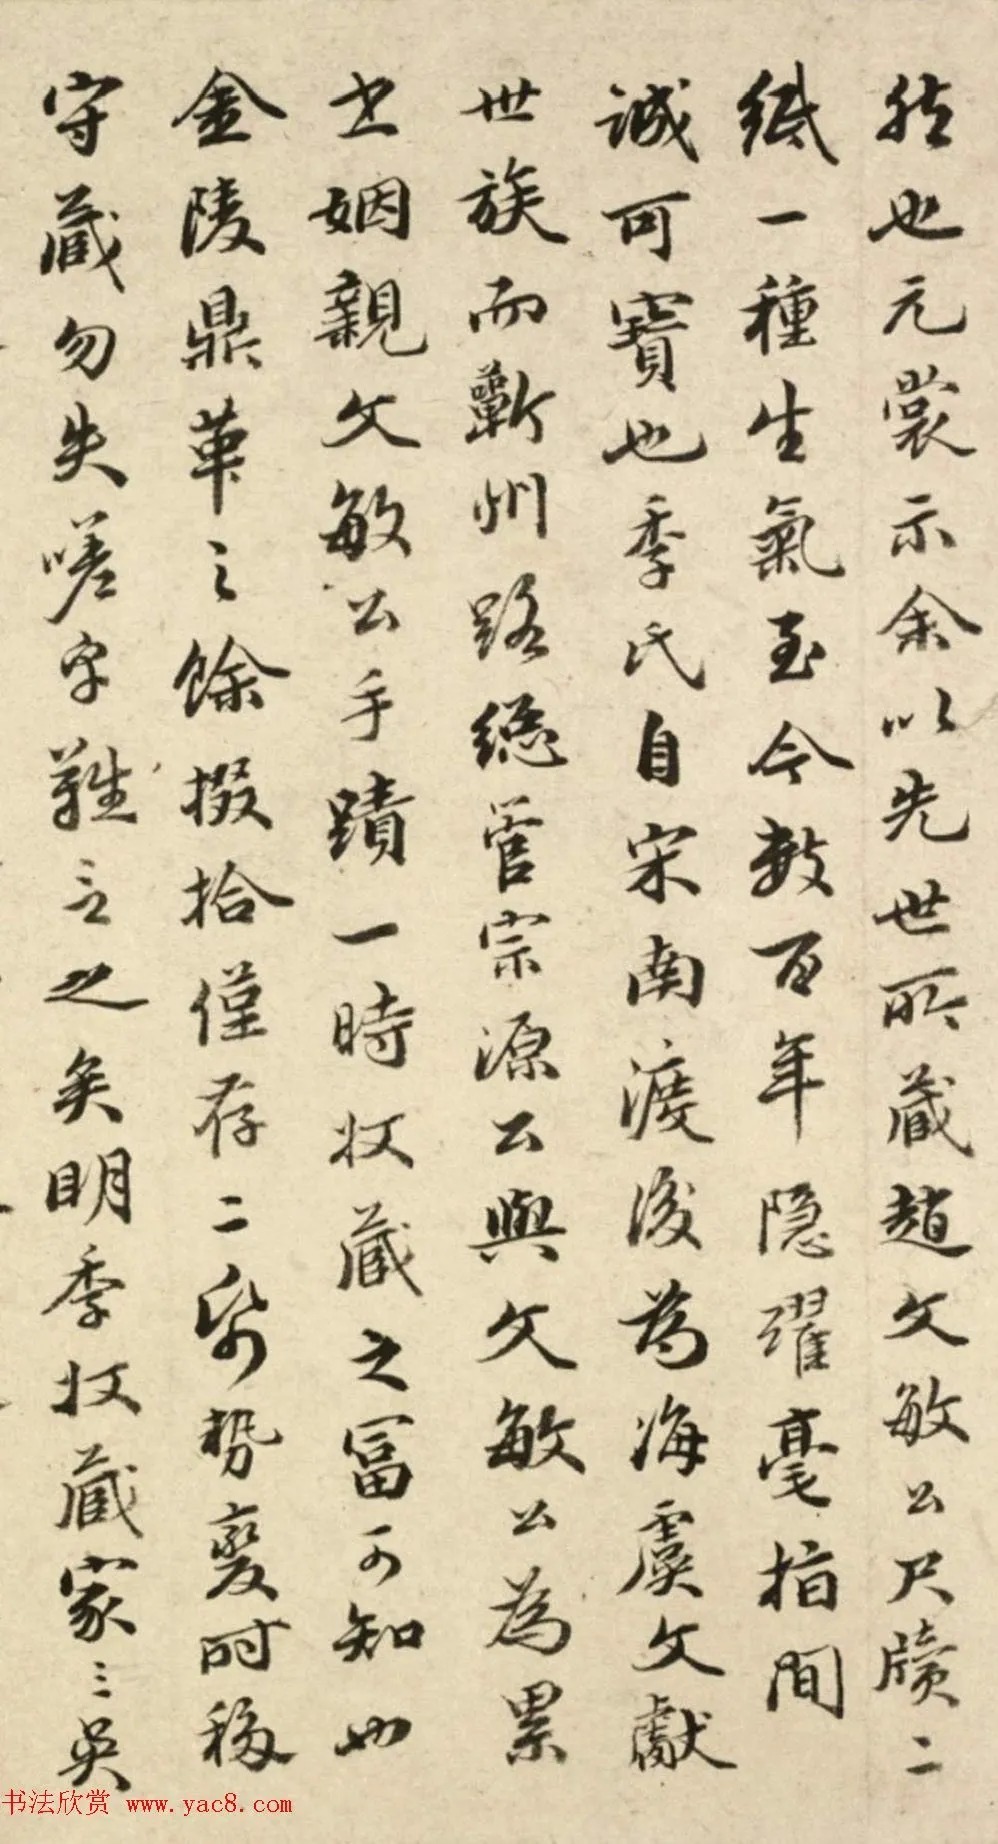 然也元裳示余以先世所藏趙文敏公尺牘二
紙一種生氣至今數百年隐耀毫指間
誠可寶也季氏自宋南渡後為海虞文獻
世族而蘄州路總管宗源公與文敏公為累
世姻親文敏公手蹟一時收藏之富可知也
金陵鼎革之餘掇拾僅存二紙勢變時移
守藏勿失嗟乎難言之矣明季收藏家三吳
书法欣赏 www.yac8.com